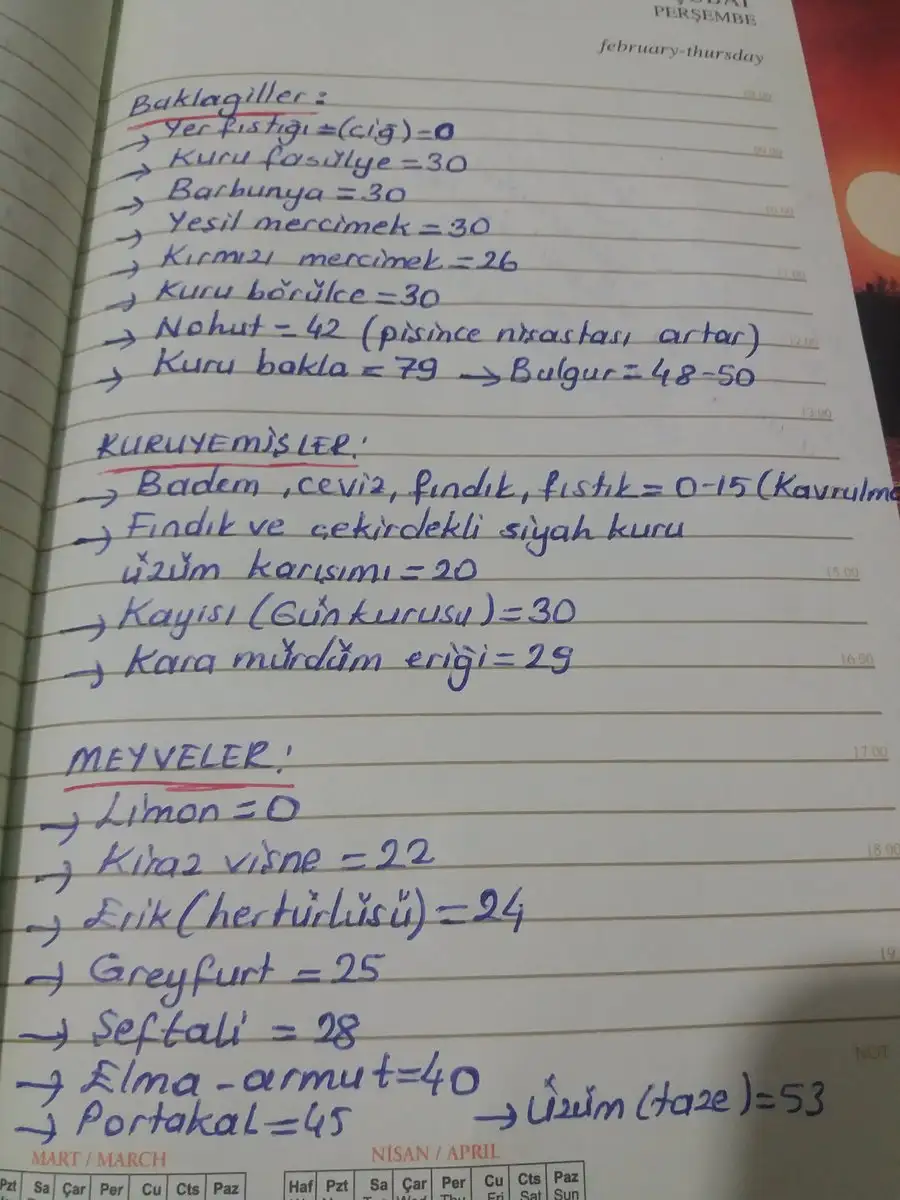 PERŞEMBE
february-thursday
08:00
Baklagiller:
→ Yer fıstığı=(çiğ)=0
09:00
→ Kuru fasülye=30
→ Barbunya=30
10:00
→ Yeşil mercimek=30
→ Kırmızı mercimek=26
11:00
→ Kuru börülce=30
→ Nohut=42 (pişince nişastası artar)
12:00
→ Kuru bakla=79 → Bulgur=48-50
13:00
KURUYEMİŞLER:
→ Badem, ceviz, fındık, fıstık=0-15 (Kavrulma
→ Fındık ve çekirdekli siyah kuru
üzüm karışımı=20
15:00
→ Kayısı (Günkurusu)=30
→ Kara mürdüm eriği=29
16:00
MEYVELER:
17:00
→ Limon=0
→ Kiraz vişne=22
18:00
→ Erik (hertürlüsü)=24
→ Greyfurt=25
19
→ Şeftali=28
NOT
→ Elma-armut=40
→ Portakal=45 → Üzüm (taze)=53
MART / MARCH NİSAN / APRIL
Pzt Sa Çar Per Cu Cts Paz Haf Pzt Sa Çar Per Cu Cts Paz
Fri Sat Sun